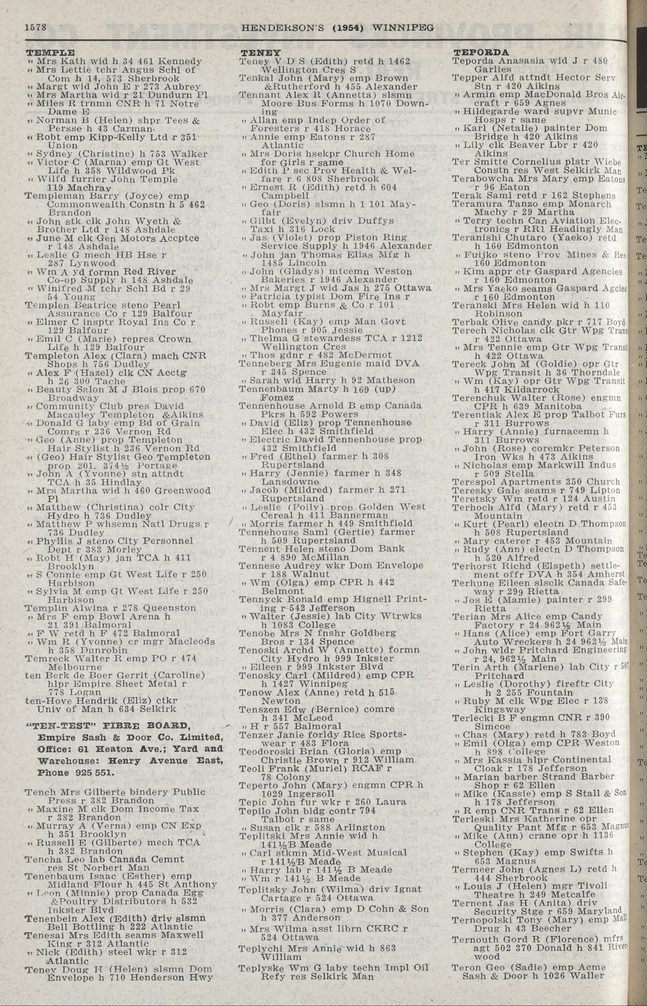 1578
HENDERSON'S (1954) WINNIPEG
TEMPLE
" Mrs Kath wid h 34 461 Kennedy
" Mrs Lettie tchr Angus Schl of
Com h 14, 573 Sherbrook
" Margt wid John E r 273 Aubrey
" Mrs Martha wid r 21 Dundurn Pl
" Miles R trnmn CNR h 71 Notre
Dame E
" Norman H (Helen) shpr Tees &
Persse h 43 Carman
" Robt emp Kipp-Kelly Ltd r 351
Union
" Sydney (Christine) h 753 Walker
" Victor C (Marna) emp Gt West
Life h 358 Wildwood Pk
" Wilfd furrier John Temple
119 Machray
Templeman Barry (Joyce) emp
Commonwealth Constn h 5 462
Brandon
" John stk clk John Wyeth &
Brother Ltd r 148 Ashdale
" June M clk Gen Motors Accptce
r 148 Ashdale
" Leslie G mech HB Hse r
287 Lynwood
" Wm A yd formn Red River
Co-op Supply h 148 Ashdale
" Winifred M tchr Schl Bd r 29
54 Young
Templen Beatrice steno Pearl
Assurance Co r 129 Balfour
" Elmer C insptr Royal Ins Co r
129 Balfour
" Emil C (Marie) repres Crown
Life h 129 Balfour
Templeton Alex (Clara) mach CNR
Shops h 756 Dudley
" Alex F (Hazel) clk CN Acctg
h 26 300 Tache
" Beauty Salon M J Blois prop 670
Broadway
" Community Club pres David
Macauley Templeton &Aikins
" Donald G laby emp Bd of Grain
Comrs r 236 Vernon Rd
" Geo (Anne) prop Templeton
Hair Stylist h 236 Vernon Rd
" (Geo) Hair Stylist Geo Templeton
prop 201, 374½ Portage
" John A (Yvonne) stn attndt
TCA h 35 Hindlay
" Mrs Martha wid h 460 Greenwood
Pl
" Matthew (Christina) colr City
Hydro h 736 Dudley
" Matthew P whsemn Natl Drugs r
736 Dudley
" Phyllis J steno City Personnel
Dept r 383 Morley
" Robt H (May) jan TCA h 411
Brooklyn
" S Connie emp Gt West Life r 250
Harbison
" Sylvia M emp Gt West Life r 250
Harbison
Templin Alwina r 278 Queenston
" Mrs F emp Bowl Arena h
21 391 Balmoral
" F W retd h F 472 Balmoral
" Wm R (Yvonne) cr mgr Macleods
h 358 Dunrobin
Temreck Walter R emp PO r 474
Melbourne
ten Berk de Boer Gerrit (Caroline)
hlpr Empire Sheet Metal r
778 Logan
ten-Hove Hendrik (Eliz) ctkr
Univ of Man h 634 Selkirk
"TEN-TEST" FIBRE BOARD,
Empire Sash & Door Co. Limited,
Office: 61 Heaton Ave.; Yard and
Warehouse: Henry Avenue East,
Phone 925 551.
Tench Mrs Gilberte bindery Public
Press r 382 Brandon
" Maxime M clk Dom Income Tax
r 382 Brandon
" Murray A (Verna) emp CN Exp
h 351 Brooklyn
" Russell E (Gilberte) mech TCA
h 382 Brandon
Tencha Leo lab Canada Cemnt
res St Norbert Man
Tenenbaum Isaac (Esther) emp
Midland Flour h 445 St Anthony
" Leon (Minnie) prop Canada Egg
&Poultry Distributors h 532
Inkster Blvd
Tenenbein Alex (Edith) driv slsmn
Bell Bottling h 222 Atlantic
Tenesai Mrs Edith seams Maxwell
King r 312 Atlantic
" Nick (Edith) steel wkr r 312
Atlantic
Teney Doug H (Helen) slsmn Dom
Envelope h 710 Henderson Hwy
TENEY
Teney V D S (Edith) retd h 1462
Wellington Cres S
Tenkal John (Mary) emp Brown
&Rutherford h 455 Alexander
Tennant Alex R (Annetta) slsmn
Moore Bus Forms h 1070 Down-
ing
" Allan emp Indep Order of
Foresters r 418 Horace
" Annie emp Eatons r 287
Atlantic
" Mrs Doris hsekpr Church Home
for Girls r same
" Edith P sec Prov Health & Wel-
fare r 6 808 Sherbrook
" Ernest R (Edith) retd h 604
Campbell
" Geo (Doris) slsmn h 1 101 May-
fair
" Gilbt (Evelyn) driv Duffys
Taxi h 316 Lock
" Jas (Violet) prop Piston Ring
Service Supply h 1946 Alexander
" John jan Thomas Elias Mfg h
1485 Lincoln
" John (Gladys) mtcemn Weston
Bakeries r 1946 Alexander
" Mrs Margt J wid Jas h 275 Ottawa
" Patricia typist Dom Fire Ins r
" Robt emp Burns & Co r 101
Mayfair
" Russell (Kay) emp Man Govt
Phones r 905 Jessie
" Thelma G stewardess TCA r 1212
Wellington Cres
" Thos gdnr r 482 McDermot
Tenneberg Mrs Eugenie maid DVA
r 245 Spence
" Sarah wid Harry h 92 Matheson
Tennenbaum Marty h 169 (up)
Fomez
Tennenhouse Arnold B emp Canada
Pkrs h 592 Powers
" David (Eliz) prop Tennenhouse
Elec h 432 Smithfield
" Electric David Tennenhouse prop
432 Smithfield
" Fred (Ethel) farmer h 308
Rupertsland
" Harry (Jennie) farmer h 348
Lansdowne
" Jacob (Mildred) farmer h 271
Rupertsland
" Leslie (Polly) prop Golden West
Cereal h 411 Bannerman
" Morris farmer h 449 Smithfield
Tennehouse Saml (Gertie) farmer
h 509 Rupertsland
Tennent Helen steno Dom Bank
r 4 890 McMillan
Tennese Audrey wkr Dom Envelope
r 188 Walnut
" Wm (Olga) emp CPR h 442
Belmont
Tennyck Ronald emp Hignell Print-
ing r 542 Jefferson
" Walter (Jessie) lab City Wtrwks
h 1083 College
Tenobe Mrs N fnshr Goldberg
Bros r 134 Spence
Tenoski Archd W (Annette) formn
City Hydro h 999 Inkster
" Eileen r 999 Inkster Blvd
Tenosky Carl (Mildred) emp CPR
h 1427 Winnipeg
Tenow Alex (Anne) retd h 515
Newton
Tenszen Edw (Bernice) comre
h 341 McLeod
" H r 557 Balmoral
Tenzer Janie forldy Rice Sports-
wear r 483 Flora
Teodoroski Brian (Gloria) emp
Christie Brown r 912 William
Teoli Frank (Muriel) RCAF r
78 Colony
Teperto John (Mary) engmn CPR h
1029 Ingersoll
Tepic John fur wkr r 260 Laura
Tepilo John bldg contr 794
Talbot r same
" Susan clk r 588 Arlington
Teplitski Mrs Annie wid h
141½B Meade
" Carl stkmn Mid-West Musical
r 141½B Meade
" Harry lab r 141½ B Meade
" Wm r 141½ B Meade
Teplitsky John (Wilma) driv Ignat
Cartage r 524 Ottawa
" Morris (Clara) emp D Cohn & Son
h 377 Anderson
" Mrs Wilma asst librn CKRC r
524 Ottawa
Teplychi Mrs Annie wid h 863
William
Teplyske Wm G laby techn Impl Oil
Refy res Selkirk Man
TEPORDA
Teporda Anasasia wid J r 480
Garlies
Tepper Alfd attndt Hector Serv
Stn r 420 Aikins
" Armin emp MacDonald Bros Air-
craft r 659 Agnes
" Hildegarde ward supvr Munic
Hosps r same
" Karl (Netalie) painter Dom
Bridge h 420 Aikins
" Lily clk Beaver Lbr r 420
Aikins
Ter Smitte Cornelius plstr Wiebe
Constn res West Selkirk Man
Terabowcha Mrs Mary emp Eatons
r 96 Eaton
Terak Saml retd r 162 Stephens
Teramura Tanzo emp Monarch
Machy r 29 Martha
" Terry techn Can Aviation Elec-
tronics r RR1 Headingly Man
Teranishi Chutaro (Yaeko) retd
h 160 Edmonton
" Fuijko steno Prov Mines & Res
160 Edmonton
" Kim appr ctr Gaspard Agencies
r 160 Edmonton
" Mrs Yaeko seams Gaspard Agcies
r 160 Edmonton
Teranski Mrs Helen wid h 110
Robinson
Terbak Olive candy pkr r 717 Boyd
Terech Nicholas clk Gtr Wpg Tran
r 422 Ottawa
" Mrs Tennie emp Gtr Wpg Transit
h 422 Ottawa
Tereck John M (Goldie) opr Gtr
Wpg Transit h 36 Thorndale
" Wm (Kay) opr Gtr Wpg Transit
h 417 Kildarrock
Terenchuk Walter (Rose) engmn
CPR h 639 Manitoba
Terentiak Alex E prop Talbot Furs
r 311 Burrows
" Harry (Annie) furnacemn h
311 Burrows
" John (Rose) coremkr Peterson
Iron Wks h 473 Aikins
" Nicholas emp Markwill Indus
r 509 Stella
Terespol Apartments 350 Church
Teresky Gale seams r 749 Lipton
Teretsky Wm retd r 124 Austin
Terhoch Alfd (Mary) retd r 453
Mountain
" Kurt (Pearl) electn D Thompson
h 508 Rupertsland
" Mary caterer r 453 Mountain
" Rudy (Ann) electn D Thompson
h 520 Alfred
Terhorst Richd (Elspeth) settle-
ment offr DVA h 354 Amherst
Terhune Eileen slsclk Canada Safe-
way r 299 Rietta
" Jos E (Mamie) painter r 299
Rietta
Terian Mrs Alice emp Candy
Factory r 24 962½ Main
" Hans (Alice) emp Fort Garry
Auto Wreckers h 24 962½ Main
" John wldr Pritchard Engineering
r 24, 962½ Main
Terin Arth (Marlene) lab City r 507
Pritchard
" Leslie (Dorothy) fireftr City
h 2 255 Fountain
" Ruby M clk Wpg Elec r 138
Kingsway
Terlecki B F engmn CNR r 390
Simcoe
" Chas (Mary) retd h 783 Boyd
" Emil (Olga) emp CPR Weston
h 898 College
" Mrs Kassia hlpr Continental
Cloak r 178 Jefferson
" Marian barber Strand Barber
Shop r 62 Ellen
" Mike (Kassie) emp S Stall & Son
h 178 Jefferson
" R emp CNR Trans r 62 Ellen
Terleski Mrs Katherine opr
Quality Pant Mfg r 653 Magnus
" Mike (Ann) crane opr h 1136
College
" Stephen (Kay) emp Swifts h
653 Magnus
Termeer John (Agnes L) retd h
444 Sherbrook
" Louis J (Helen) mgr Tivoli
Theatre h 249 Metcalfe
Ternent Jas H (Anita) driv
Security Stge r 659 Maryland
Ternopolski Tony (Mary) emp Mall
Drug h 43 Beecher
Ternouth Gord R (Florence) mfrs
agt 502 370 Donald h 841 River-
wood
Teron Geo (Sadie) emp Acme
Sash & Door h 1026 Waller